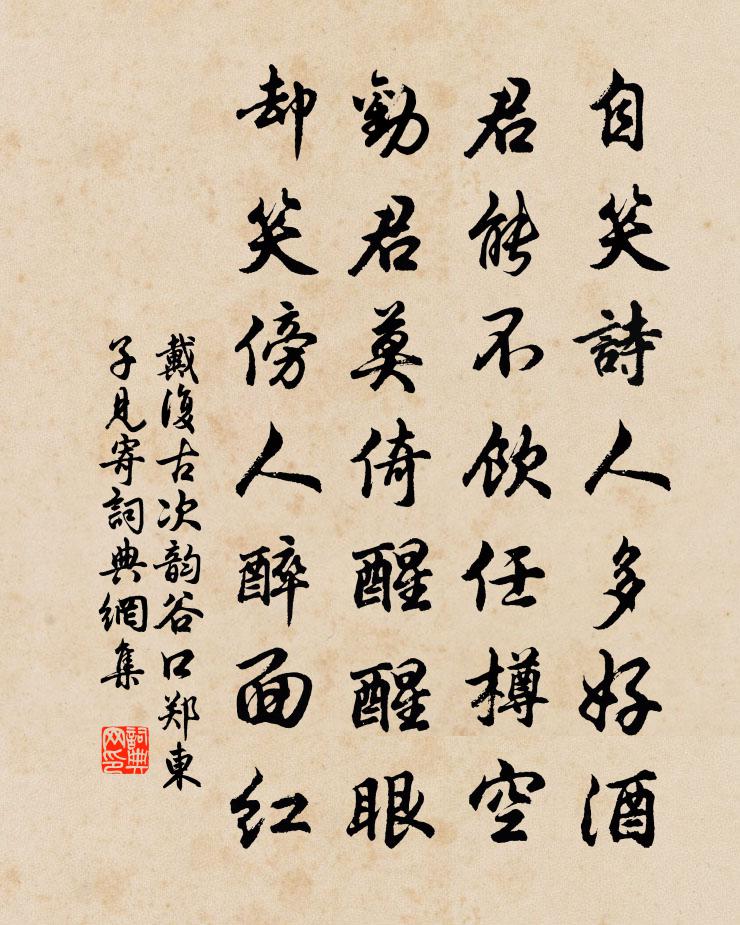 自笑詩人多好酒
君能不飲任樽空
勸君莫倚醒醒眼
却笑傍人醉面红
戴復古次韵谷口郑東
子見寄詞典網集
詞典
网印